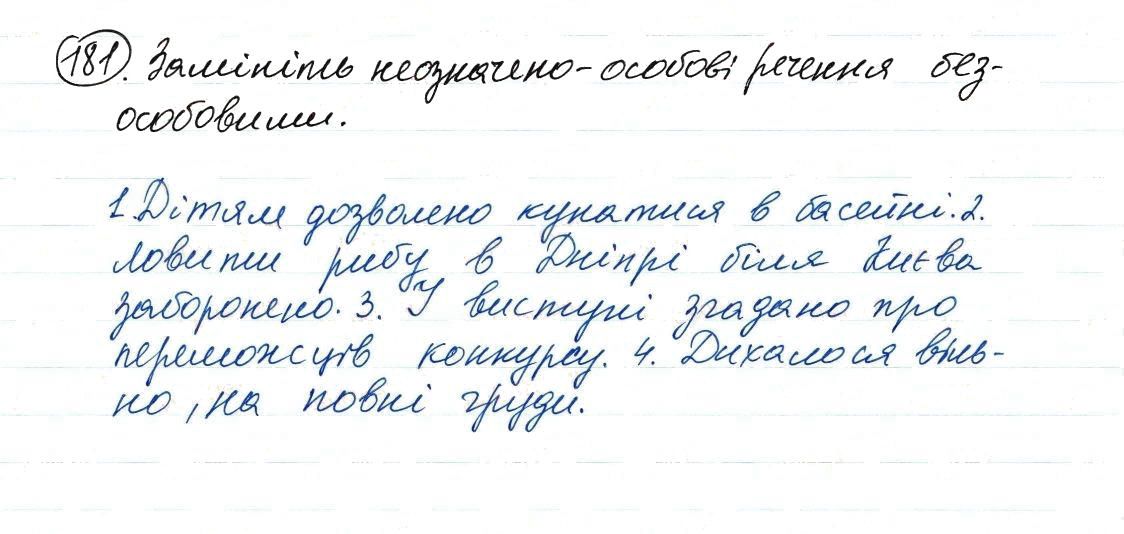 181. Замініть неозначено-особові речення без-
особовими.
1. Дітям дозволено купатися в басейні. 2.
Ловити рибу в Дніпрі біля Києва
заборонено. 3. У виступі згадано про
переможців конкурсу. 4. Дихалося віль-
но, на повні груди.